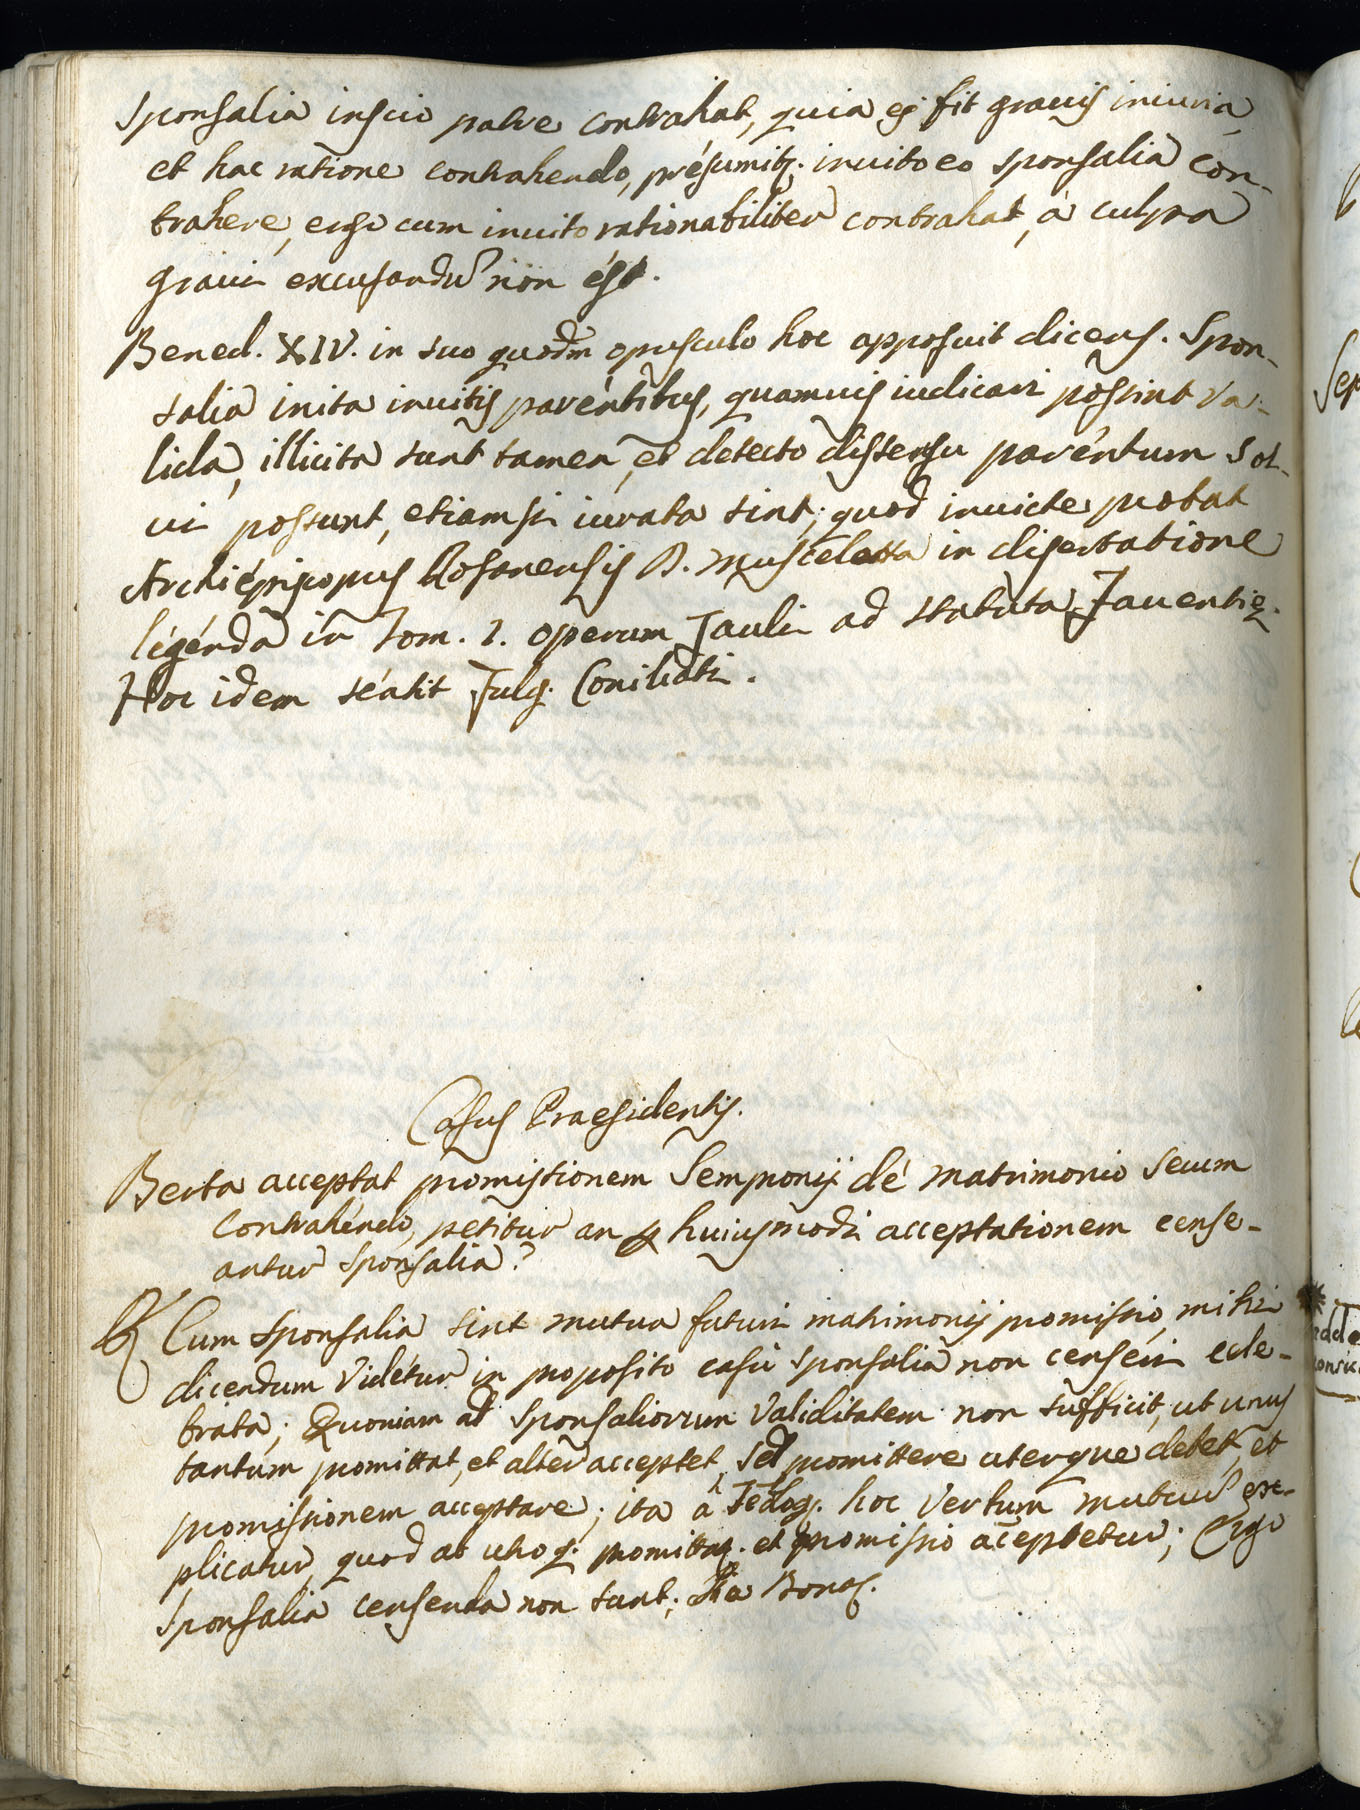 Sponsalia inscio patre contrahat, quia ej fit gravis iniuria,
et hac ratione contrahendo, présumitq; invito eo sponsalia con-
trahere, ergo cum invito rationabiliter contrahat, à culpa
gravi excusandũ non ést.
Bened. XIV. in suo quodm opusculo hoc apposuit dicens. Spon-
salia inita invitis paréntibus, quamvis iudicari possint va-
lida, illicita sunt tamen, et detecto dissensu paréntum sol-
vi possunt, etiamsi iurata sint; quod invicte probat
Archiépiscopus Rosanensis B. Muscelatta in disertatione
légénda in Tom. 2. operum Pauli ad statuta Faventię.
Hoc idem séntit Fulg. Coniliati.
Casus Praesidentis.
Berta acceptat promissionem Sempronij dé Matrimonio secum
contrahéndo, petitur an p huiusmodi acceptationem cense-
antur sponsalia?
R Cum sponsalia sint mutua futuri matrimonij promissio, mihi
dicendum vidétur in proposito casu sponsalia non censeri cele-
brata; Quoniam ad sponsaliorum validitatem non sufficit, ut unus
tantum promittat, et alter acceptet, sed promittere uterque debet, et
promissionem acceptare; ita à Teõlog. hoc verbum mutuũ ex-
plicatur, quod ab utroq; promittaq; et promissio aceptetur; Ergo
Sponsalia censenda non sunt; Ita Bonac.